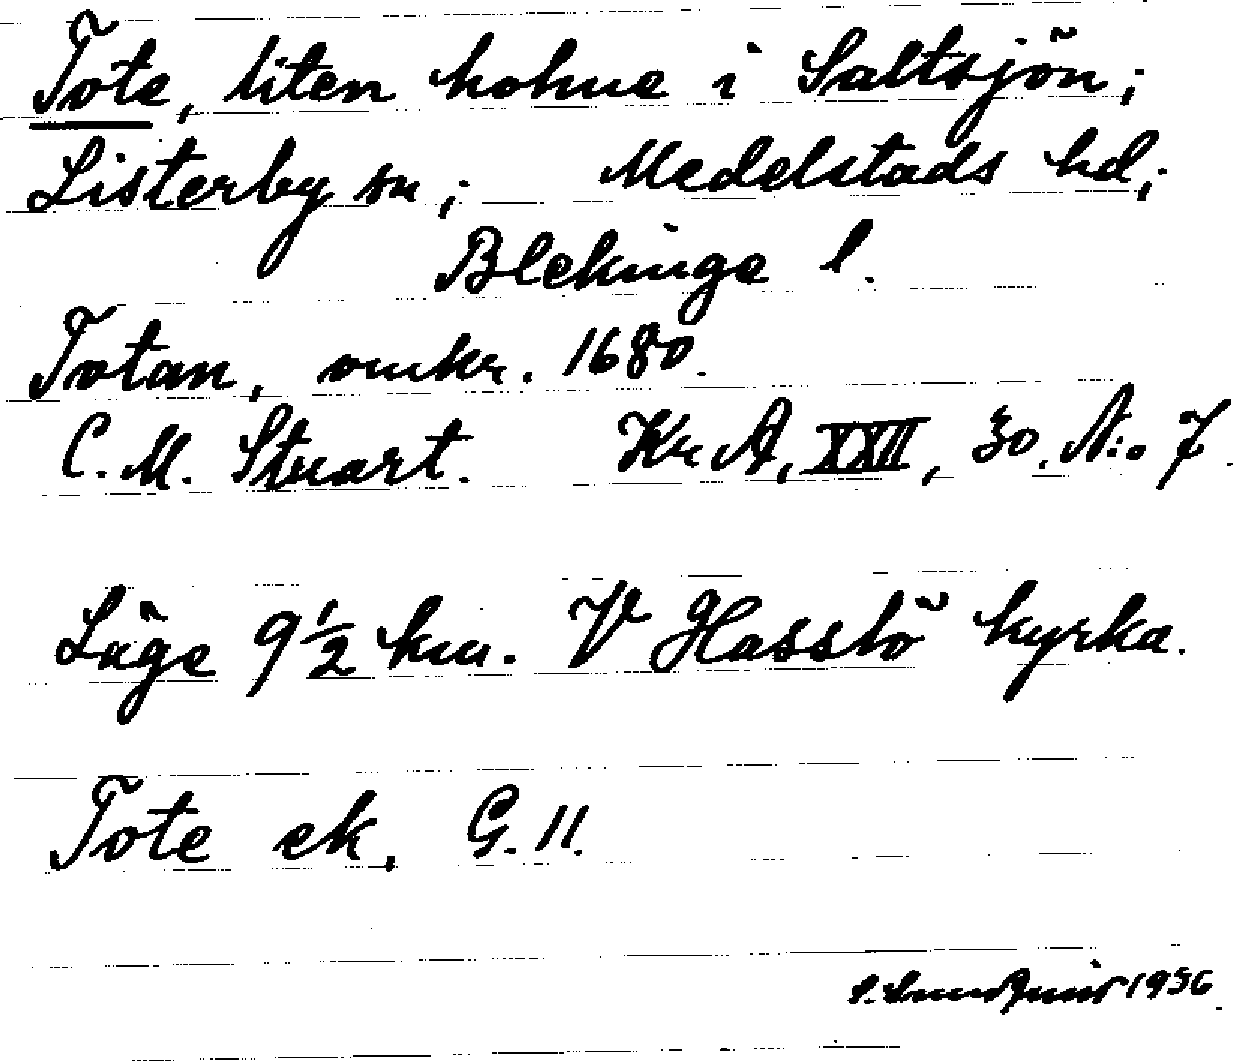 Tote, liten holme i Saltsjön;
Listerby sn; Medelstads hd;
Blekinge l.
Totan, omkr. 1680.
C. M. Stuart. Kr A, XXII, 30, N:o 7.
Läge 9½ km. V Hasslö kyrka.
Tote ek. G. 11.
1956